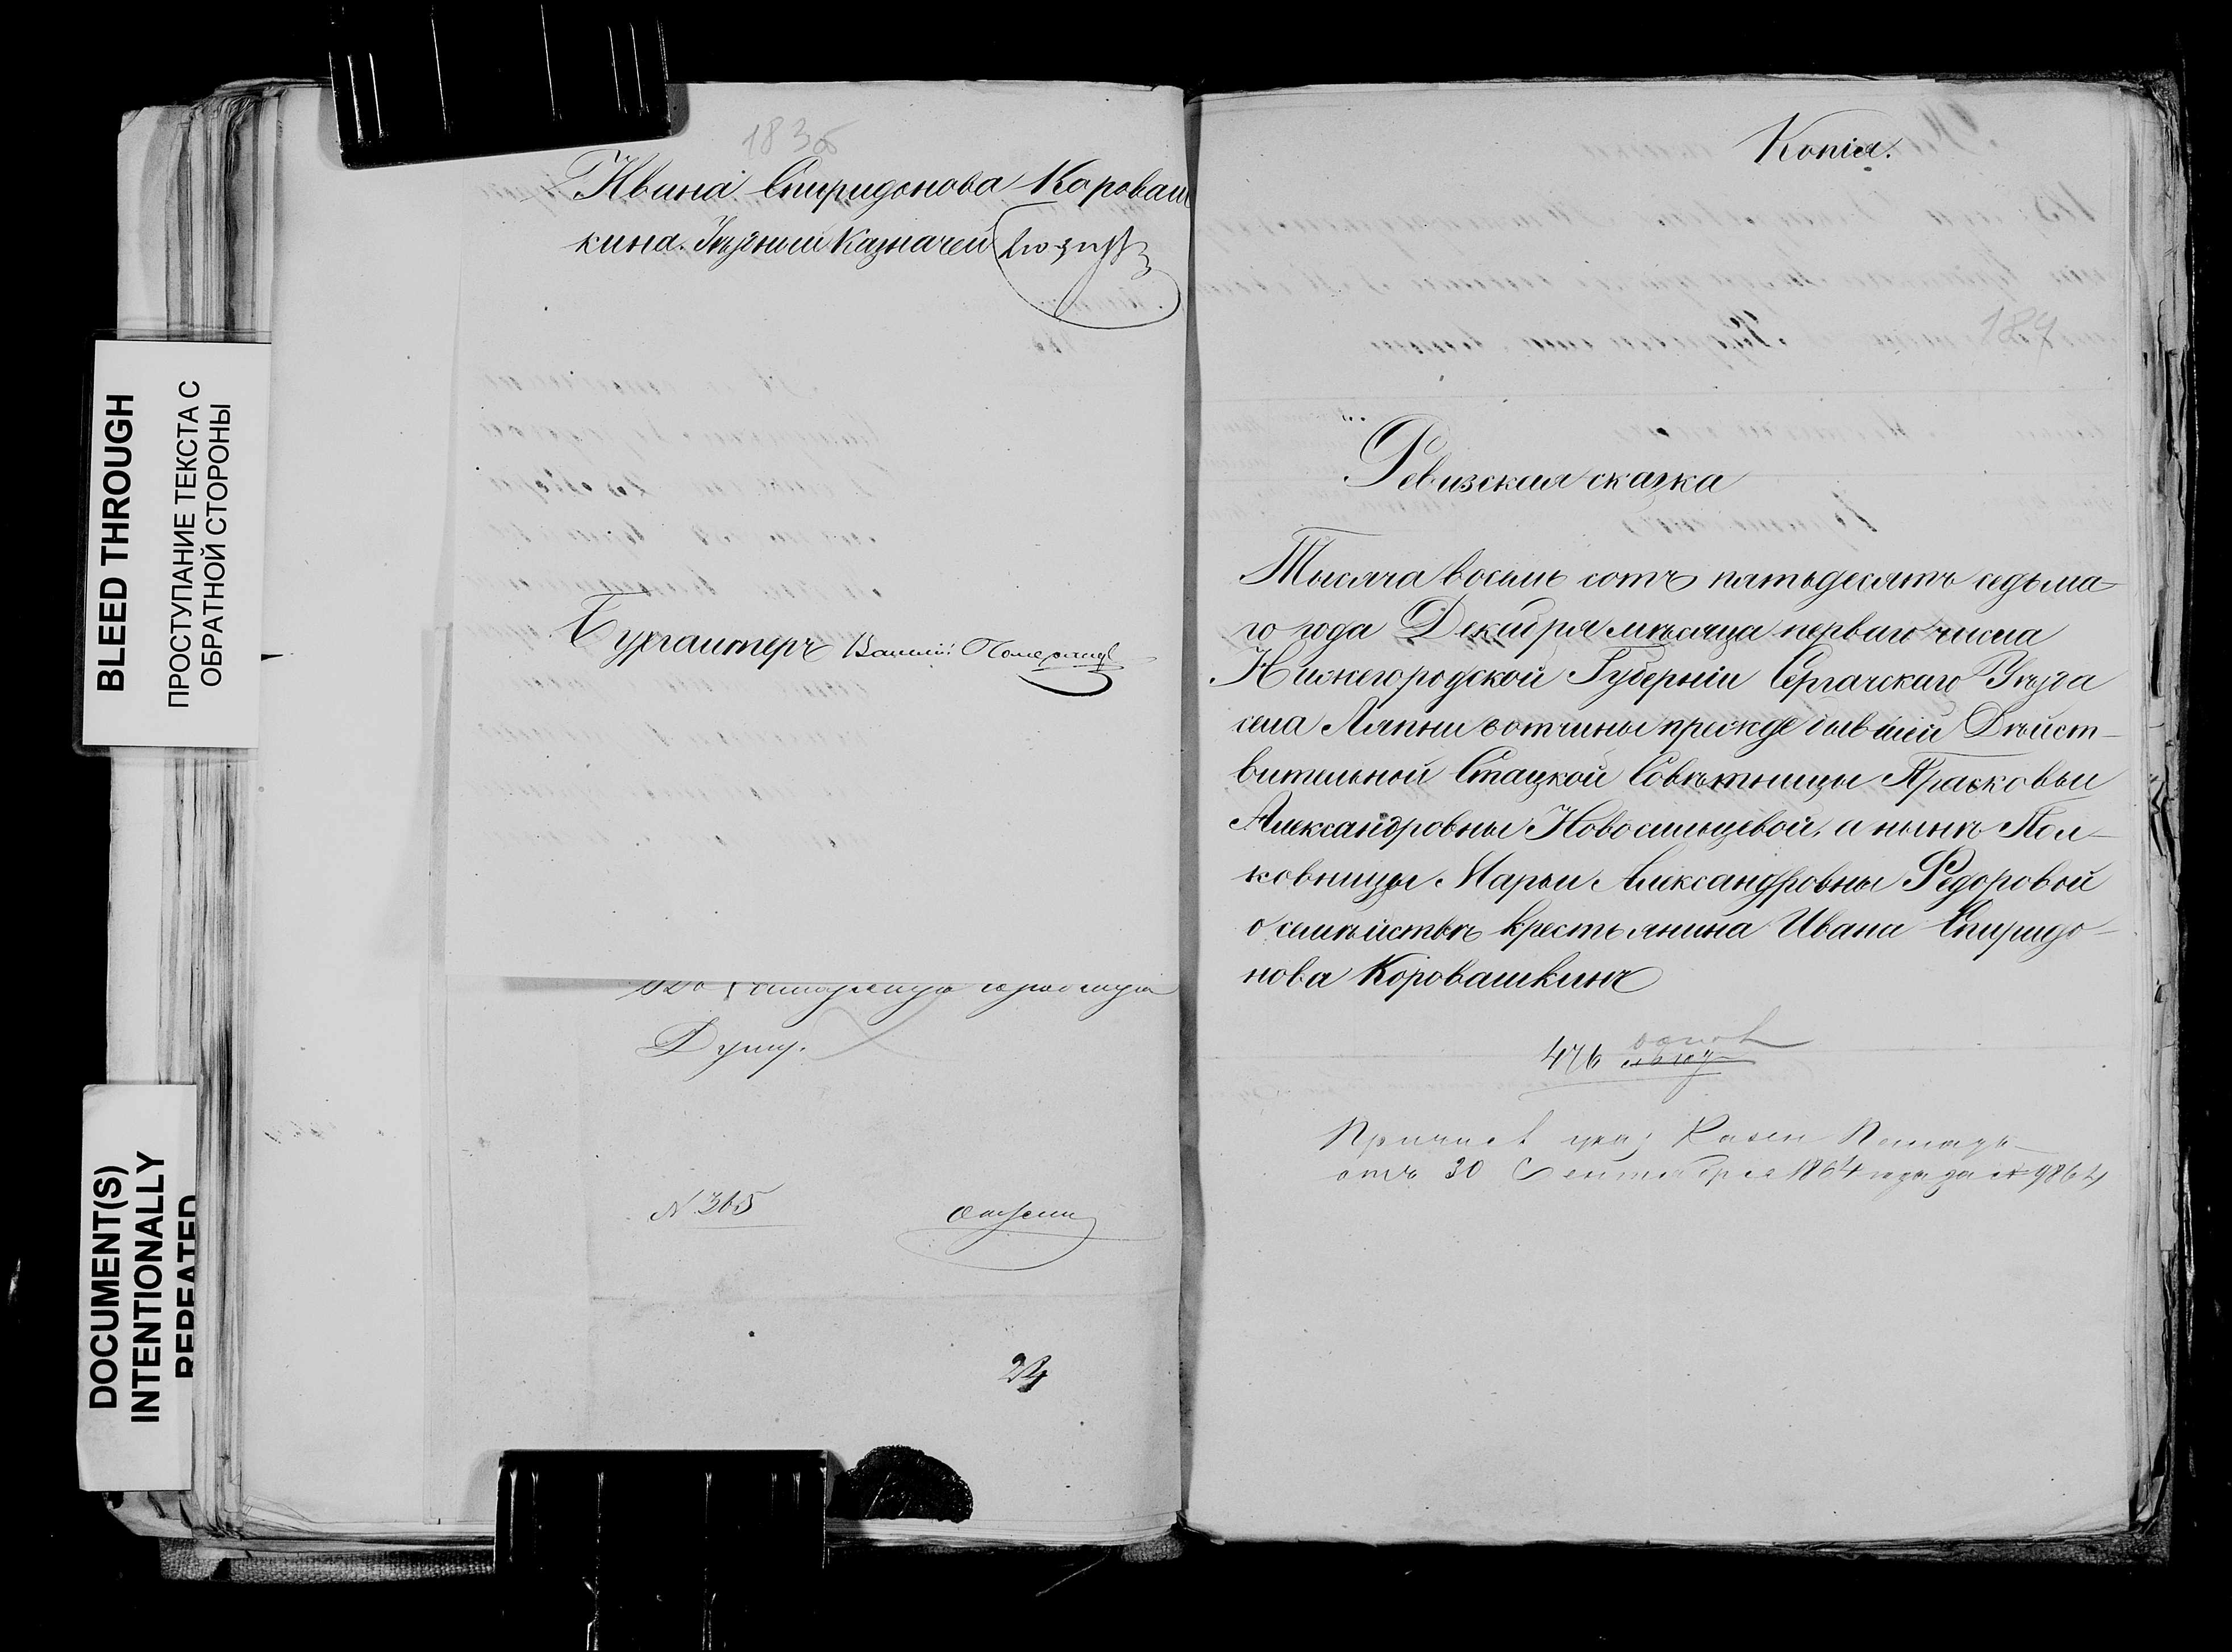 BLEED THROUGH
ПРОСТУПАНИЕ ТЕКСТА С
ОБРАТНОЙ СТОРОНЫ
DOCUMENT(S)
INTENTIONALLY
REPEATED
183об
Ивана Спиридонова Короваш
кина. Уѣздный Казначей
Бургомистръ Василій
Думу.
№ 365
24
Копія.
184
Ревизская сказка
Тысяча восемь сотъ пятьдесятъ седьма-
го года Декабря мѣсяца перваго числа
Нижегородской Губерніи Сергачскаго Уѣзда
села Ляпни вотчины прежде бывшей Дѣйст-
вительной Стацкой Совѣтницы Прасковьи
Александровны Новосильцевой, а нынѣ Пол-
ковницы Марьи Александровны Федоровой
о семѣйствѣ крестьянина Ивана Спиридо-
нова Коровашкинa
476
Казен
отъ 30 Сентября 1864 года за № 9864